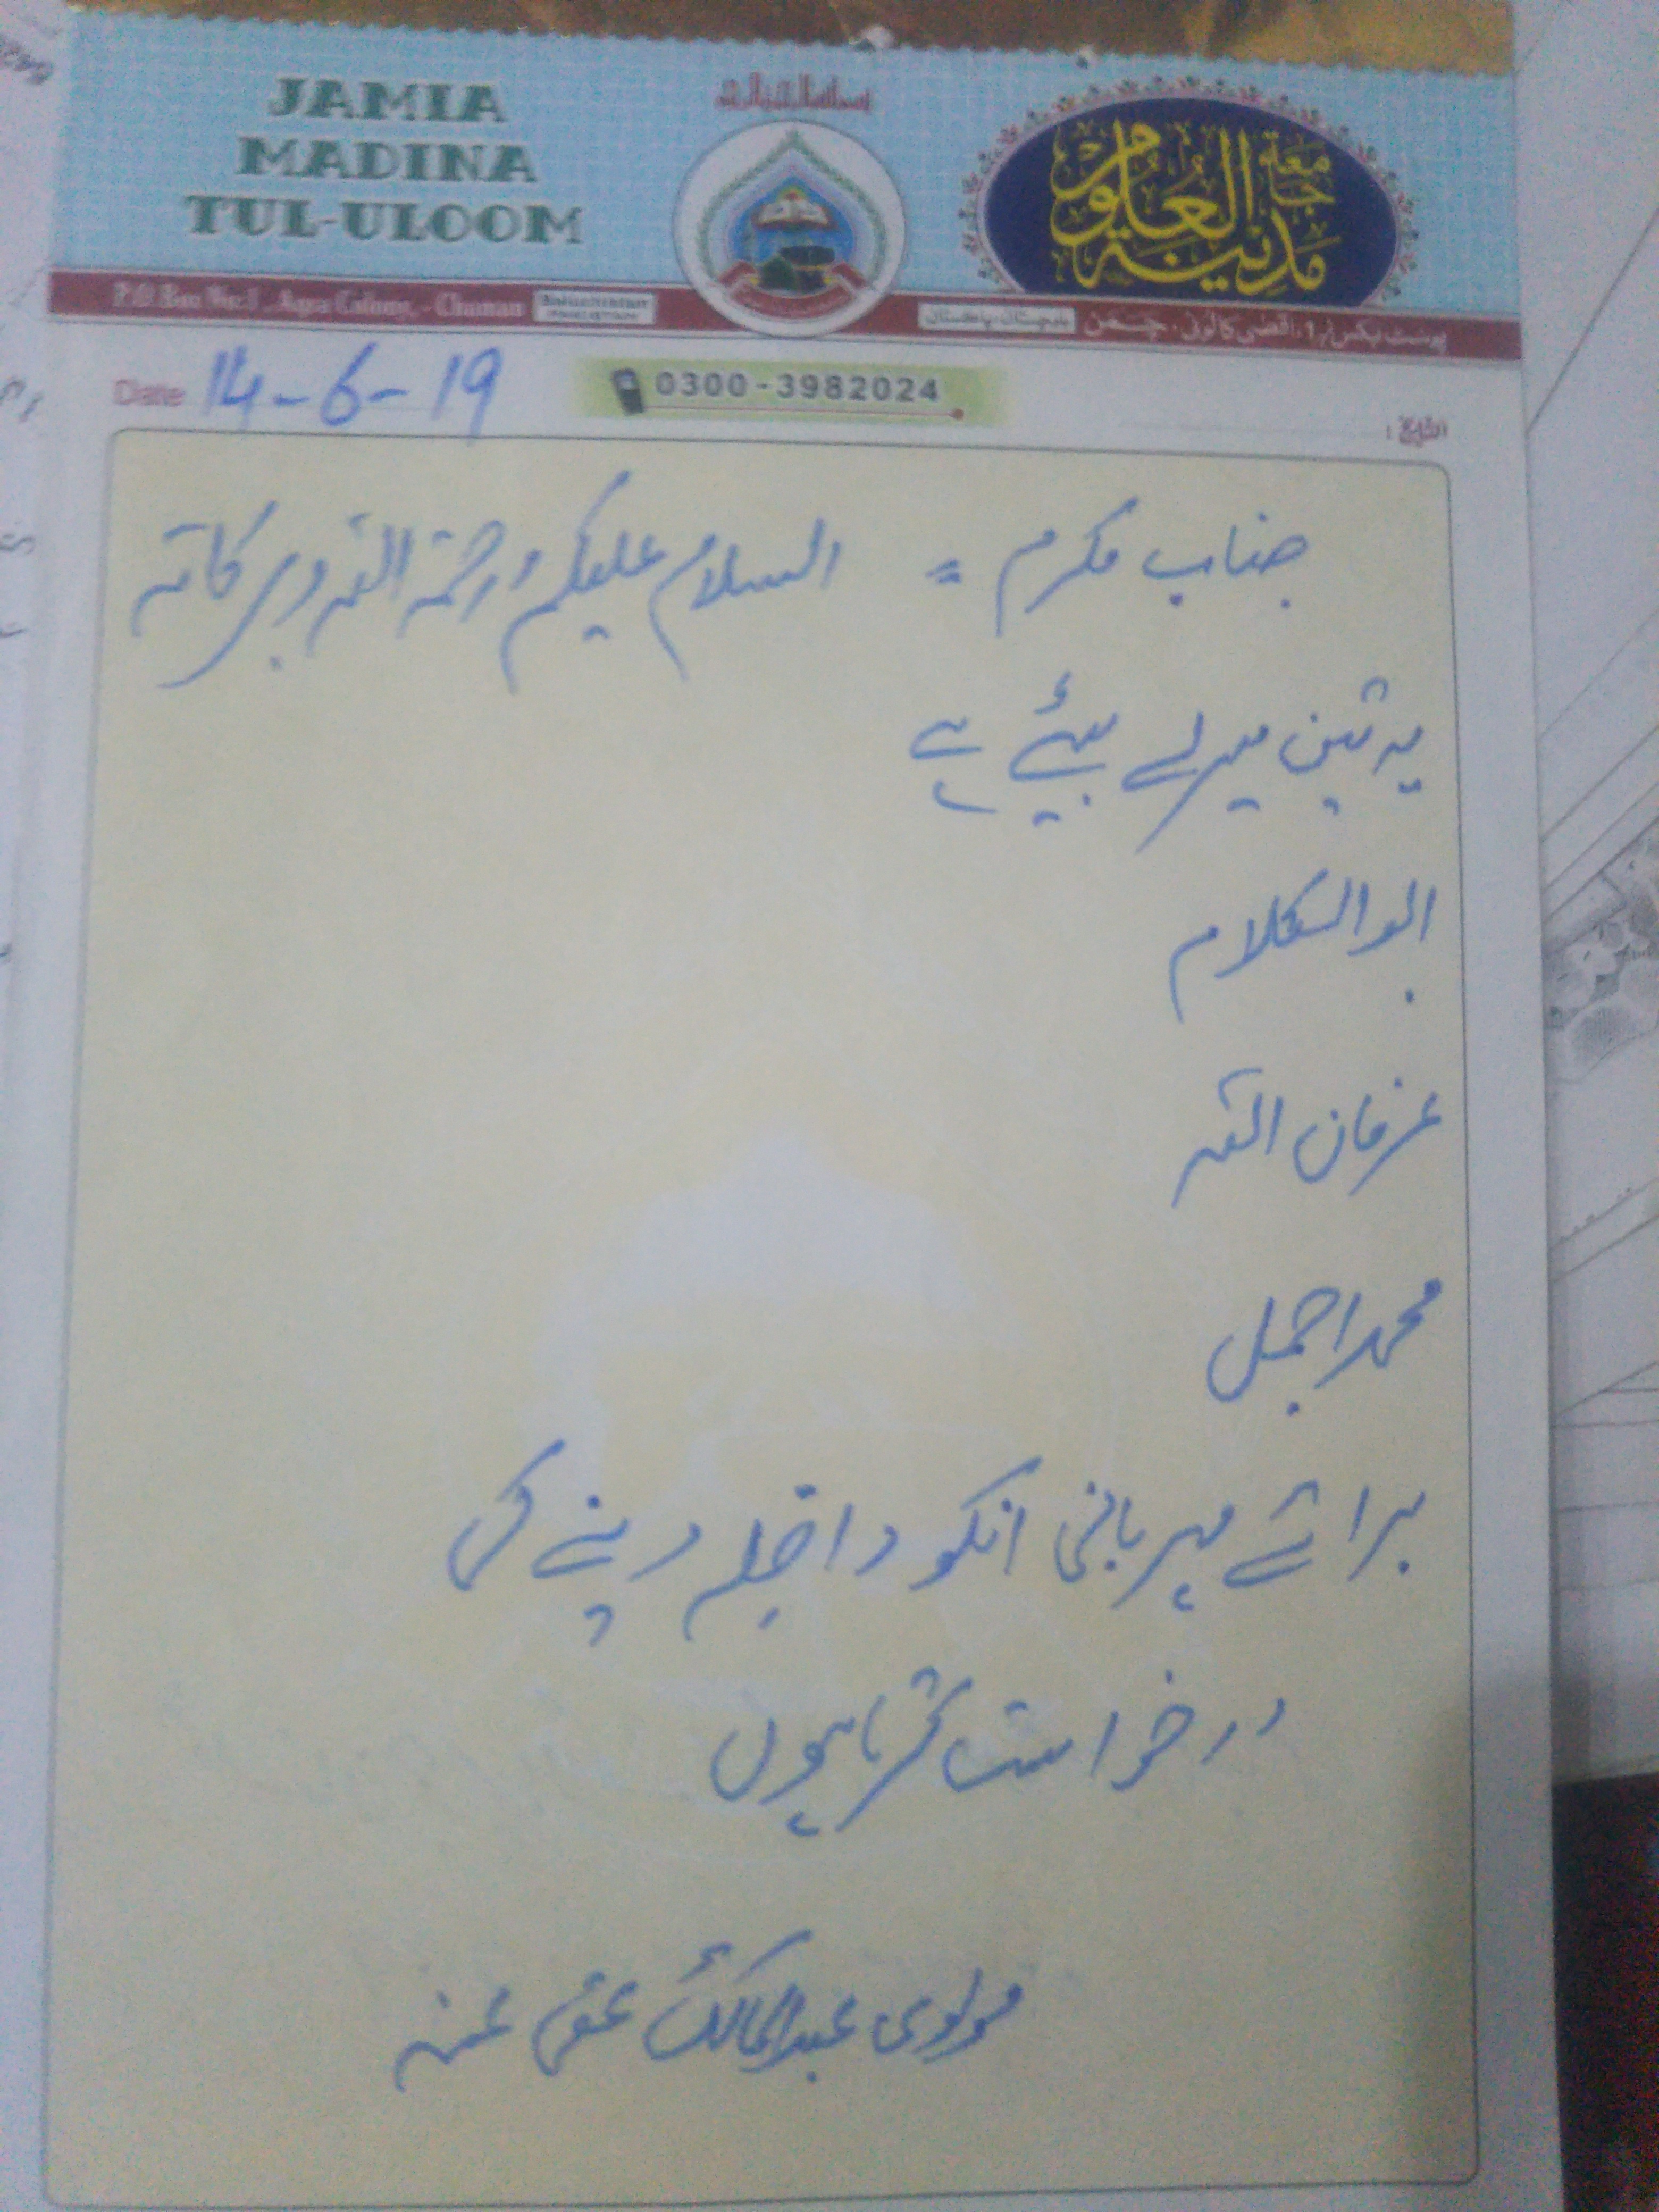 JAMIA
MADINA
TUL-ULOOM
جامعة
مدينة العلوم
P.O Box No:1, Aqsa Colony, - Chaman Balochistan PAKISTAN
پوسٹ بکس نمبر 1، اقصٰی کالونی، چمن بلوچستان، پاکستان
Date 14-6-19
0300-3982024
التاريخ :
جناب مکرم = السلام علیکم ورحمۃ اللہ وبرکاتہ
یہ تین میرے بیٹے ہے
ابو الکلام
عرفان اللہ
محمد اجمل
برائے مہربانی انکو داخلہ دینے کی
درخواست کرتا ہوں
مولوی عبدالمالک عفی عنہ